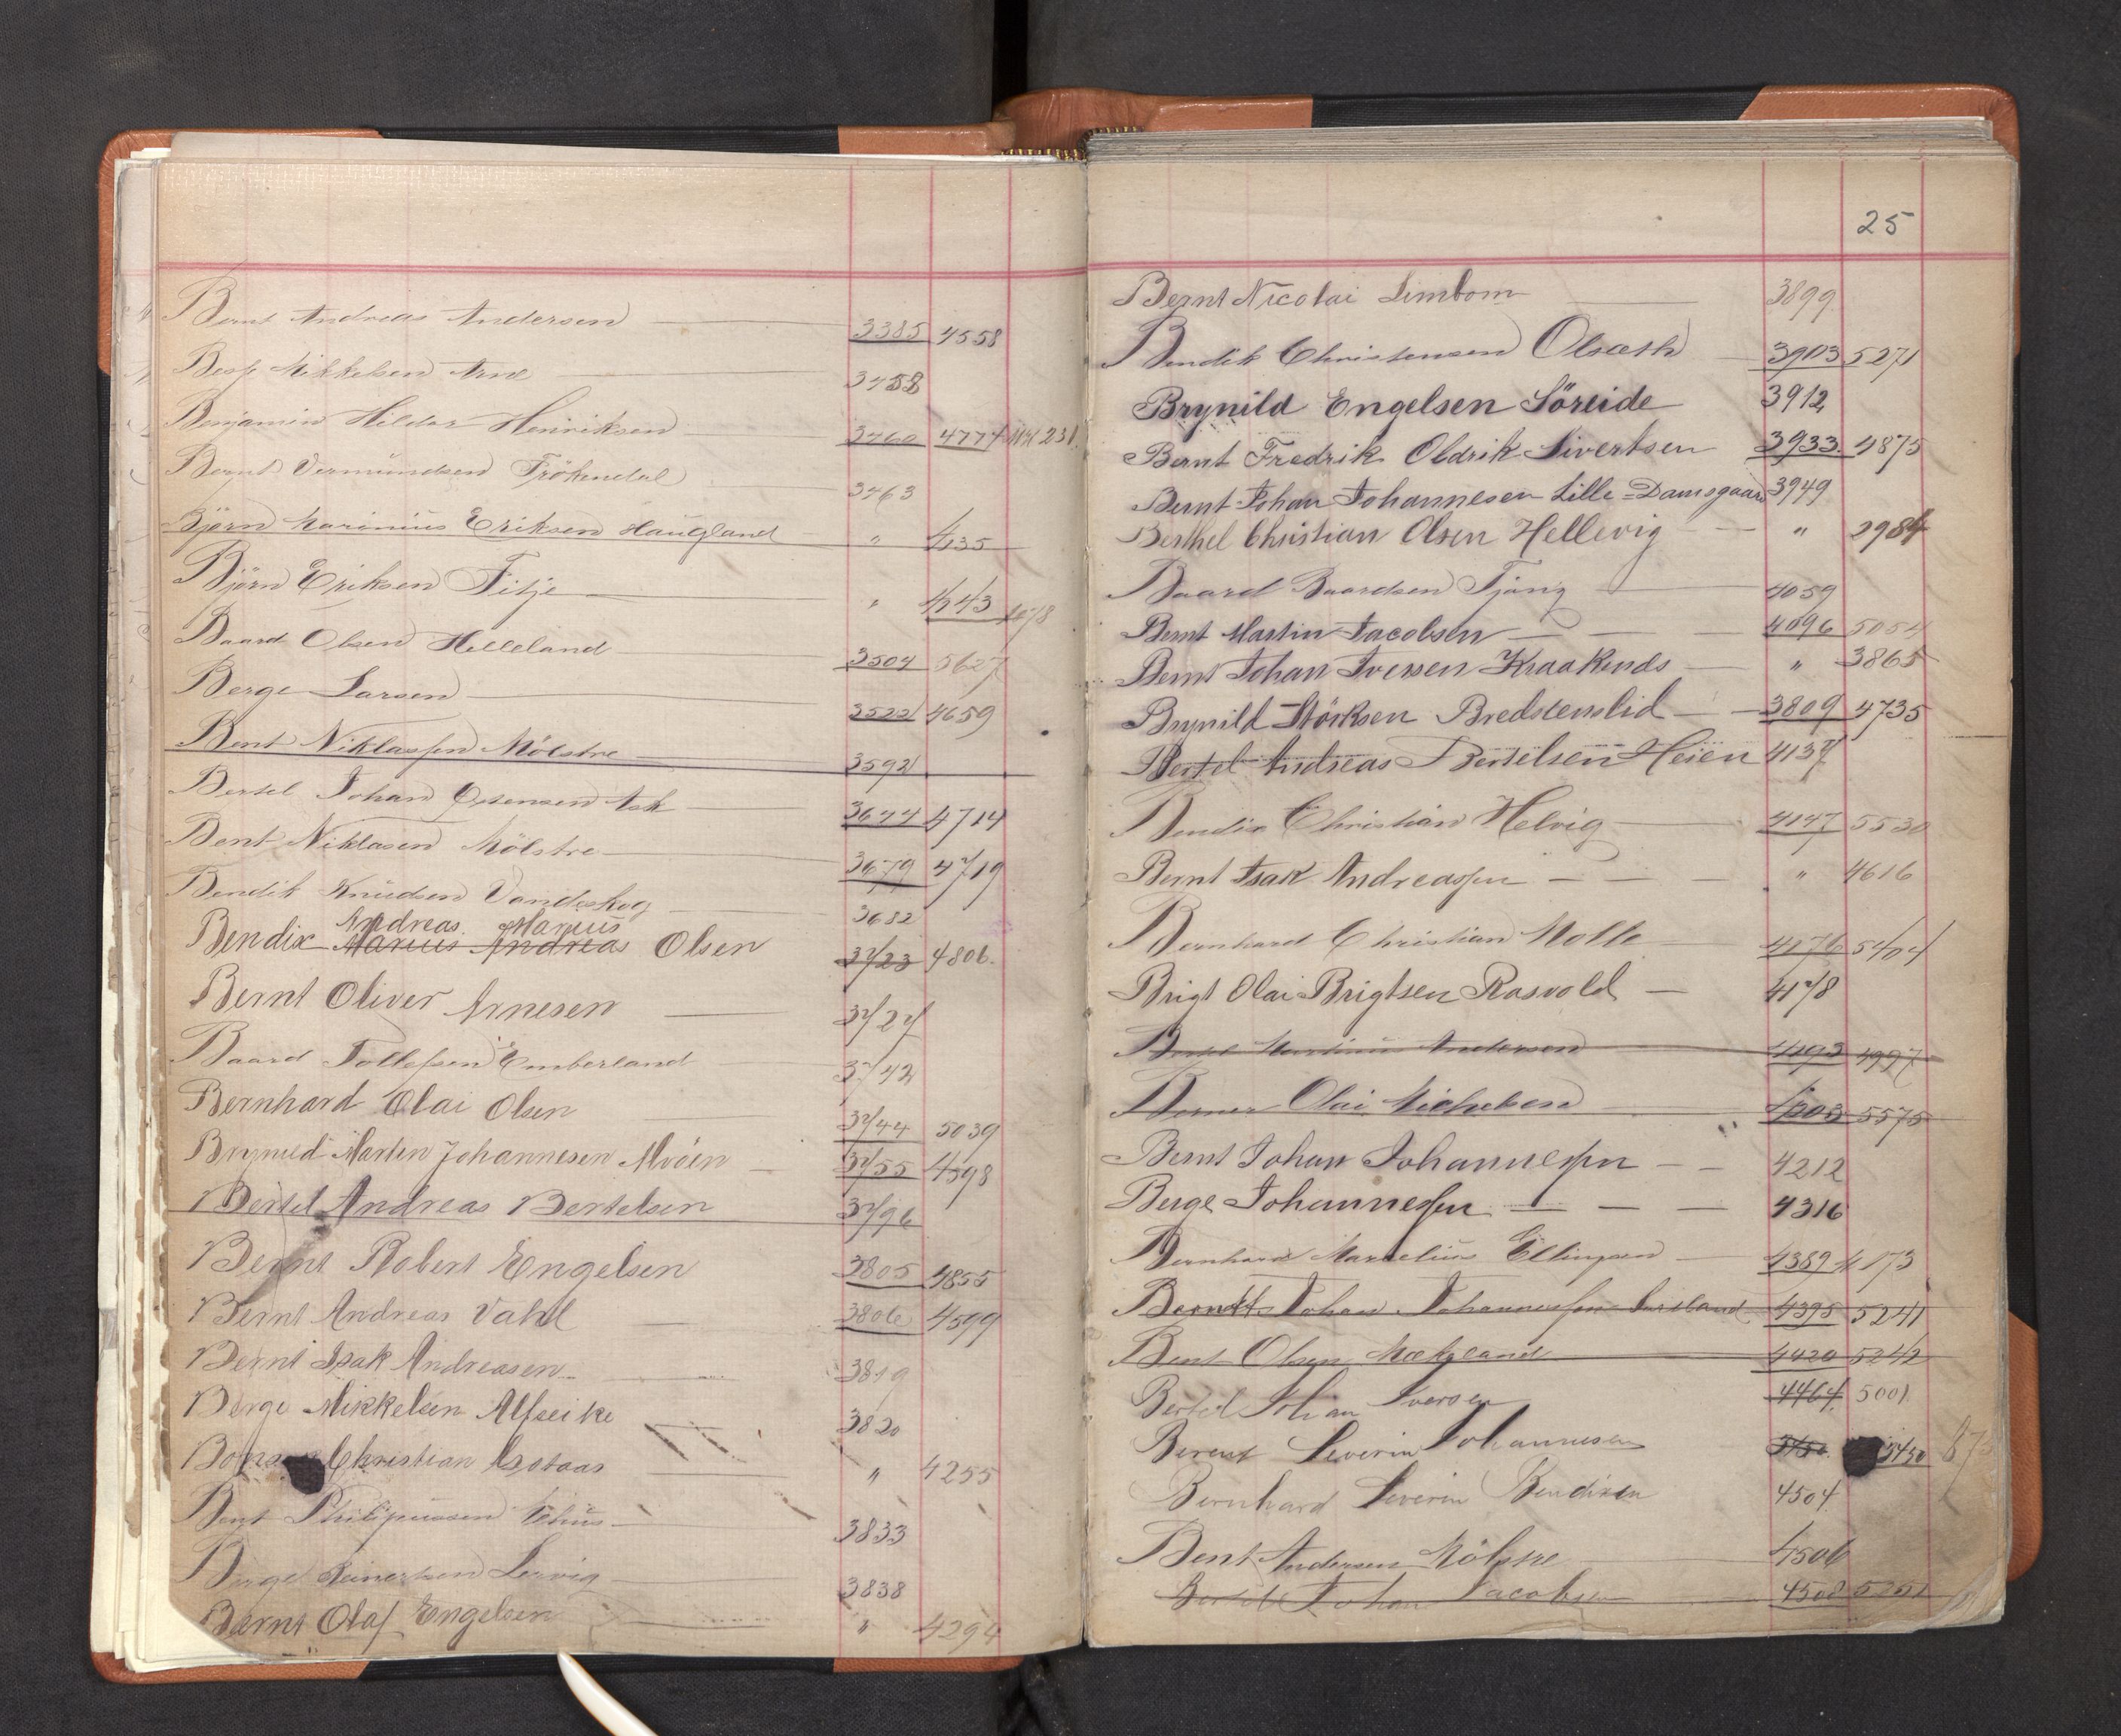 Bernt Andreas Andersen 3385 4558
Mikkelsen Arne 3458
Benjamin Hildor Henriksen 3460 4774 231
Bernt Vermundsen Frökendal 3463
Björn Marinius Eriksen Haugland " 4135
Björn Eriksen Fitje " 4243
Baard Olsen Helleland 3504 5627
Berge Larsen 3522 4659
Bent Niklassen Mölstre 3592
Bertel Johan Ask 3644 4714
Bent Niklasen Mölstre 3679 4719
Bendik Knudsen Vandeskog 3682
Andreas Marius
Bendix Marius Andreas Olsen 3723 4806.
Bernt Oliver Arnesen 3727
Baard Tollefsen Emberland 3742
Bernhard Olai Olsen 3744 5039
Martin Johannesen 3755 4598
Bertel Andreas Bertelsen 3796
Bernt Robert Engelsen 3805 4855
Bernt Andreas Vahl 3806 4599
Bernt Isak Andreasen 3819
Berge Mikkelsen Alfseike 3820
Christian " 4255
Bent 3833
Birge Leirvig 3838
Bernt Olaf Engelsen " 4294
25
Bernt Nicolai Limbom 3899
Bendik Christensen 3903 5271
Brynild Engelsen Söreide 3912
Bernt Fredrik Oldrik Sivertsen 3933 4875
Bernt Johan Johannesen Lille=Damsgaard 3949
Berthel Christian Olsen Hellevig " 2984
Baard Baardsen 4059
Bernt Martin Jacobsen 4096 5054
Bernt Johan Iversen Kraakends " 3865
Brynild Störksen Bredstenslid 3809 4735
Bertel Andreas Bertelsen Heien 4137
Bendix Christian Helvig 4147 5530
Bernt Isak Andreassen " 4616
Bernhard Christian Molle 4176 5404
Brigt Olai Brigtsen Rasvold 4178
Andersen 4193 4997
Olai Michelsen 4203 5575
Bernt Johan Johannessen 4212
Berge Johannessen 4316
Bernhard Ellingsen 4389 173
Berndt Johan Johannessen 4395 5241
Bent Olsen 4420 5242
Bertel Johan Iversen 4464 5001
Berent Severin Johannesen 3450 3450
Bernhard Severin Bendixen 4504
Bent Andersen Mölstre 4506
Johan Jacobsen 4508